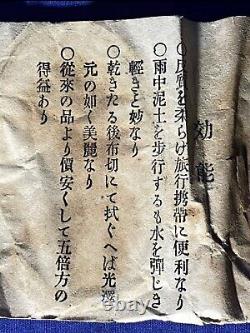 効能
〇皮質を柔らげ旅行携帯に便利なり
〇雨中泥土を歩行するも水を弾じき
軽きと妙なり
〇乾きたる後布切にて拭ぐへば光澤
元の如く美麗なり
〇従來の品より價安くして五倍方の
得益あり